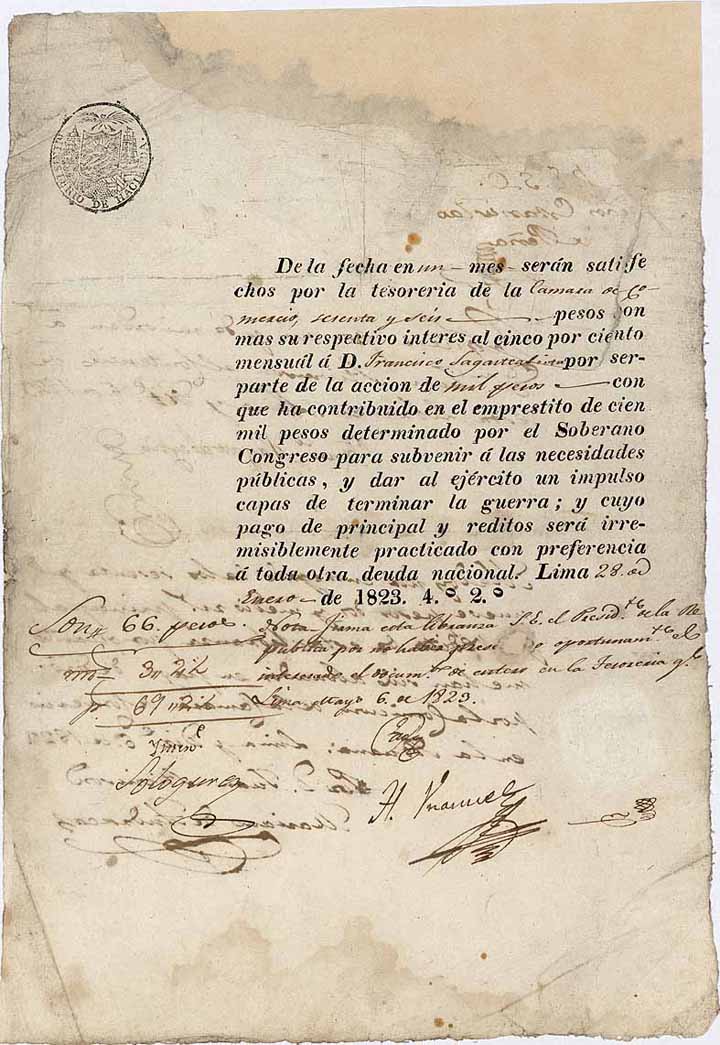 MINISTERIO DE HACIENDA.
De la fecha en un mes serán satisfe
chos por la tesoreria de la Camara de Co
mercio, sesenta y seis pesos con
mas su respectivo interes al cinco por ciento
mensuál á D. Francisco por ser-
parte de la accion de mil pesos con
que ha contribuido en el emprestito de cien
mil pesos determinado por el Soberano
Congreso para subvenir á las necesidades
públicas, y dar al ejército un impulso
capas de terminar la guerra; y cuyo
pago de principal y reditos será irre-
misiblemente practicado con preferencia
á toda otra deuda nacional. Lima 28 de
Enero de 1823. 4.º 2.º
Son 66. pesos. Nota firma esta libranza S.E. el Presid.te de la Re
publica por no haber oportunam.te el
interesado el docum.to de entero en la Tesoreria g.l
Lima Mayo 6. de 1823.
69
H. Unanue